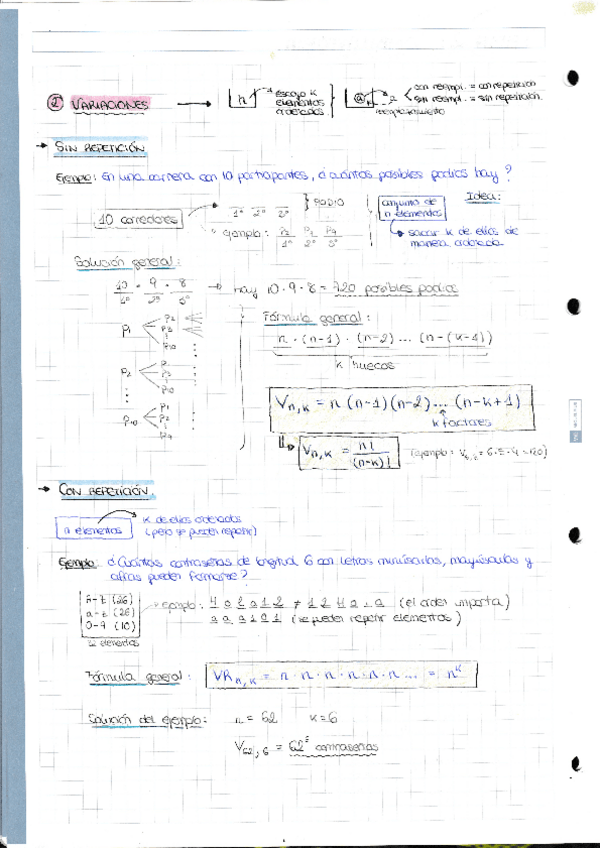 ① VARIACIONES → n escojo k elementos ordenados
con reempl. = con repetición
sin reempl. = sin repetición
reemplazamiento
→ SIN REPETICIÓN
Ejemplo: En una carrera con 10 participantes, ¿cuántos posibles podios hay?
10 corredores
1º 2º 3º } PODIO
ejemplo: P2 P1 P4
1º 2º 3º
conjunto de n elementos
Idea:
sacar k de ellos de manera ordenada
Solución general:
10 · 9 · 8 → hay 10·9·8 = 720 posibles podios
1º 2º 3º
P1 P2 P3 P10
P2 P1 P3 P10
P10 P1 P2 P9
Fórmula general:
n · (n-1) · (n-2) ... (n-(k-1))
k huecos
Vn,k = n (n-1)(n-2)... (n-k+1)
k factores
Vn,k = n! / (n-k)!
→ CON REPETICIÓN.
n elementos
k de ellos ordenados
(pero se pueden repetir)
Ejemplo: ¿Cuántas contraseñas de longitud 6 con letras minúsculas, mayúsculas y
cifras pueden formarse?
A-Z (26)
a-z (26)
0-9 (10)
62 elementos
ejemplo:
(el orden importa)
(se pueden repetir elementos)
Fórmula general: VRn,k = n · n · n · n · n · n ... = n^k
Solución del ejemplo: n = 62 k = 6
V62,6 = contraseñas